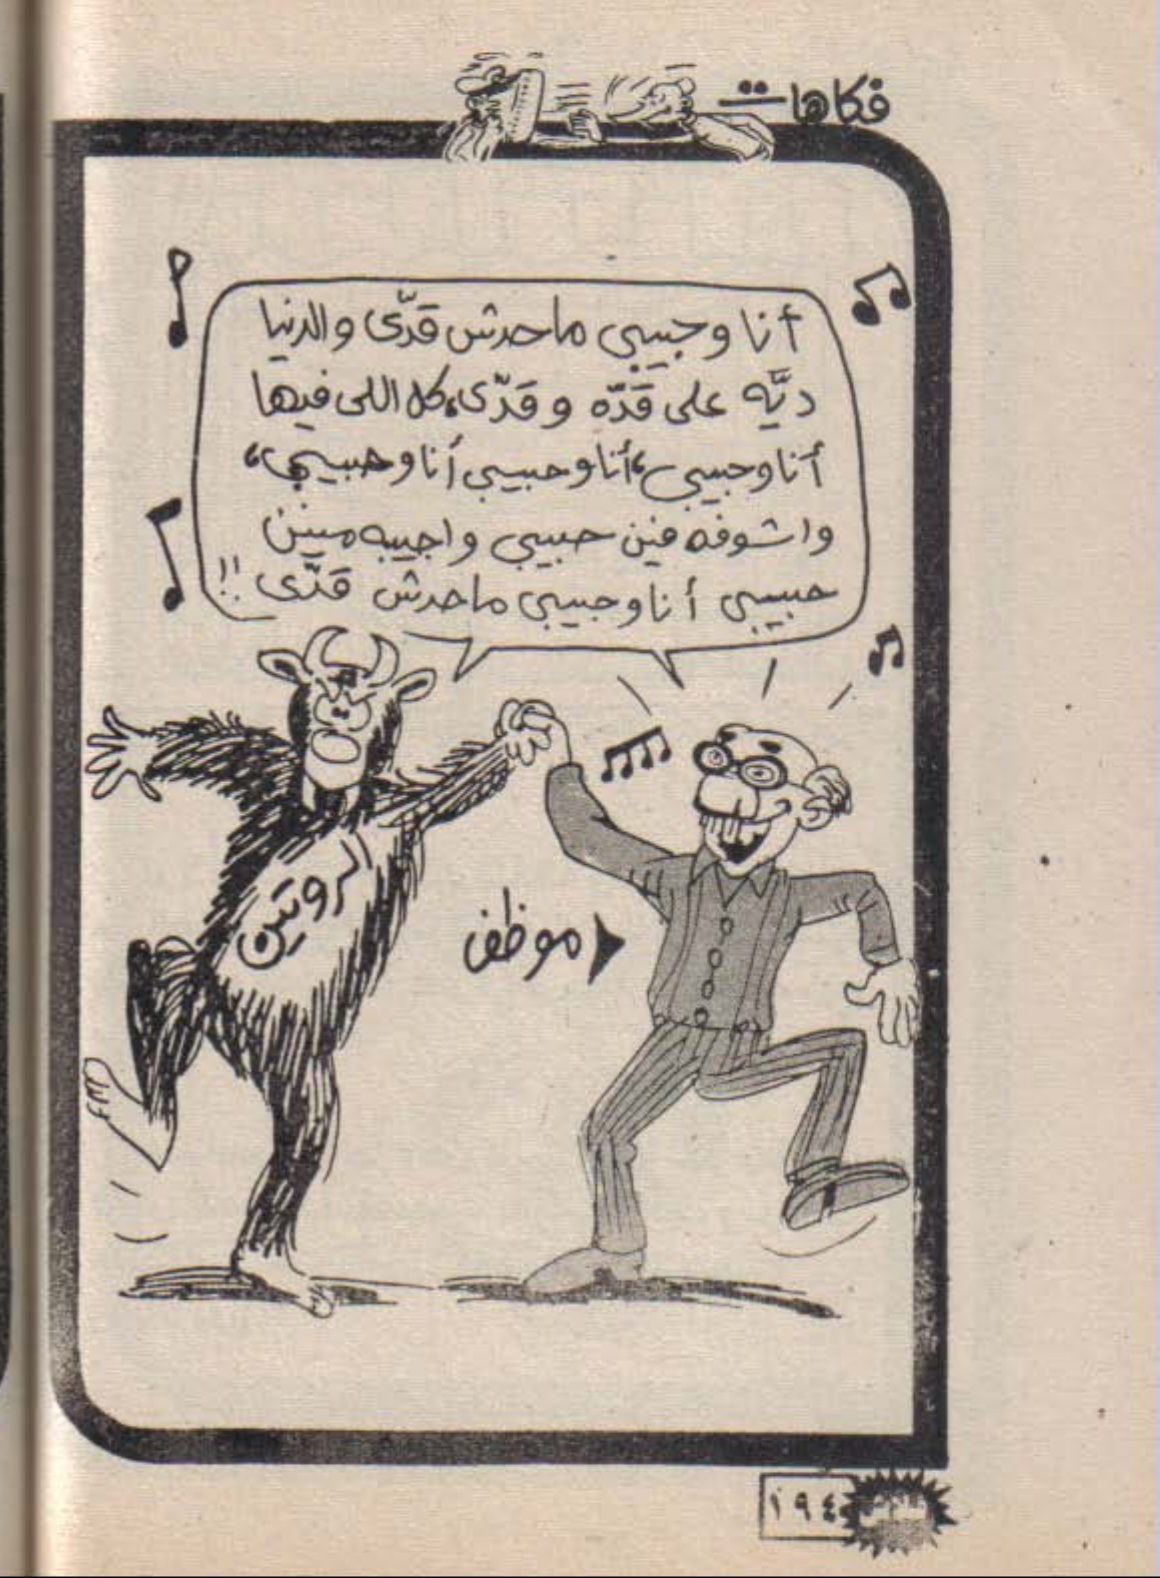 فكاهات
أنا وحبيبي ماحدش قدّى والدنيا
ديَّه على قدّه وقدّى، كل اللى فيها
أنا وحبيبي، أنا وحبيبي أنا وحبيبي،
واشوفه فين حبيبي واجيبه منين
حبيبي أنا وحبيبي ماحدش قدّى !!
الروتين
موظف
١٩٤